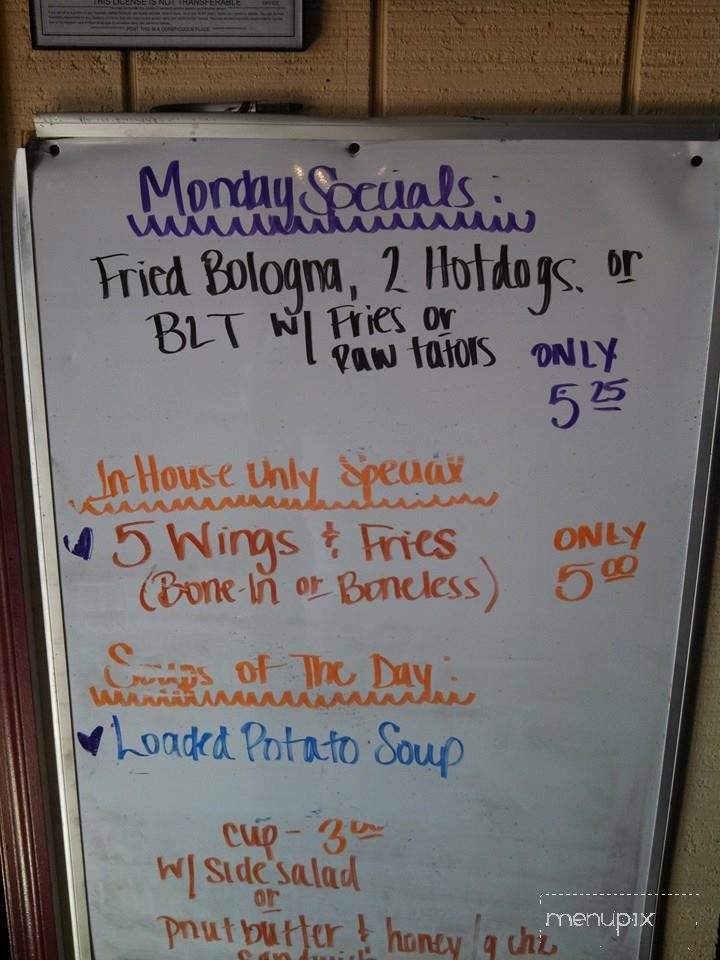 THIS LICENSE IS NOT TRANSFERABLE
OFFICE
POST THIS IN A CONSPICUOUS PLACE
Monday Specials:
Fried Bologna, 2 Hotdogs. or
BLT w/ Fries or
Raw tators ONLY
5 25
In House Only Special
5 Wings & Fries ONLY
(Bone-In or Boneless) 5 00
Soups of The Day:
Loaded Potato Soup
cup - 3 00
w/ side salad
or
pnut butter & honey / g chz
menupix